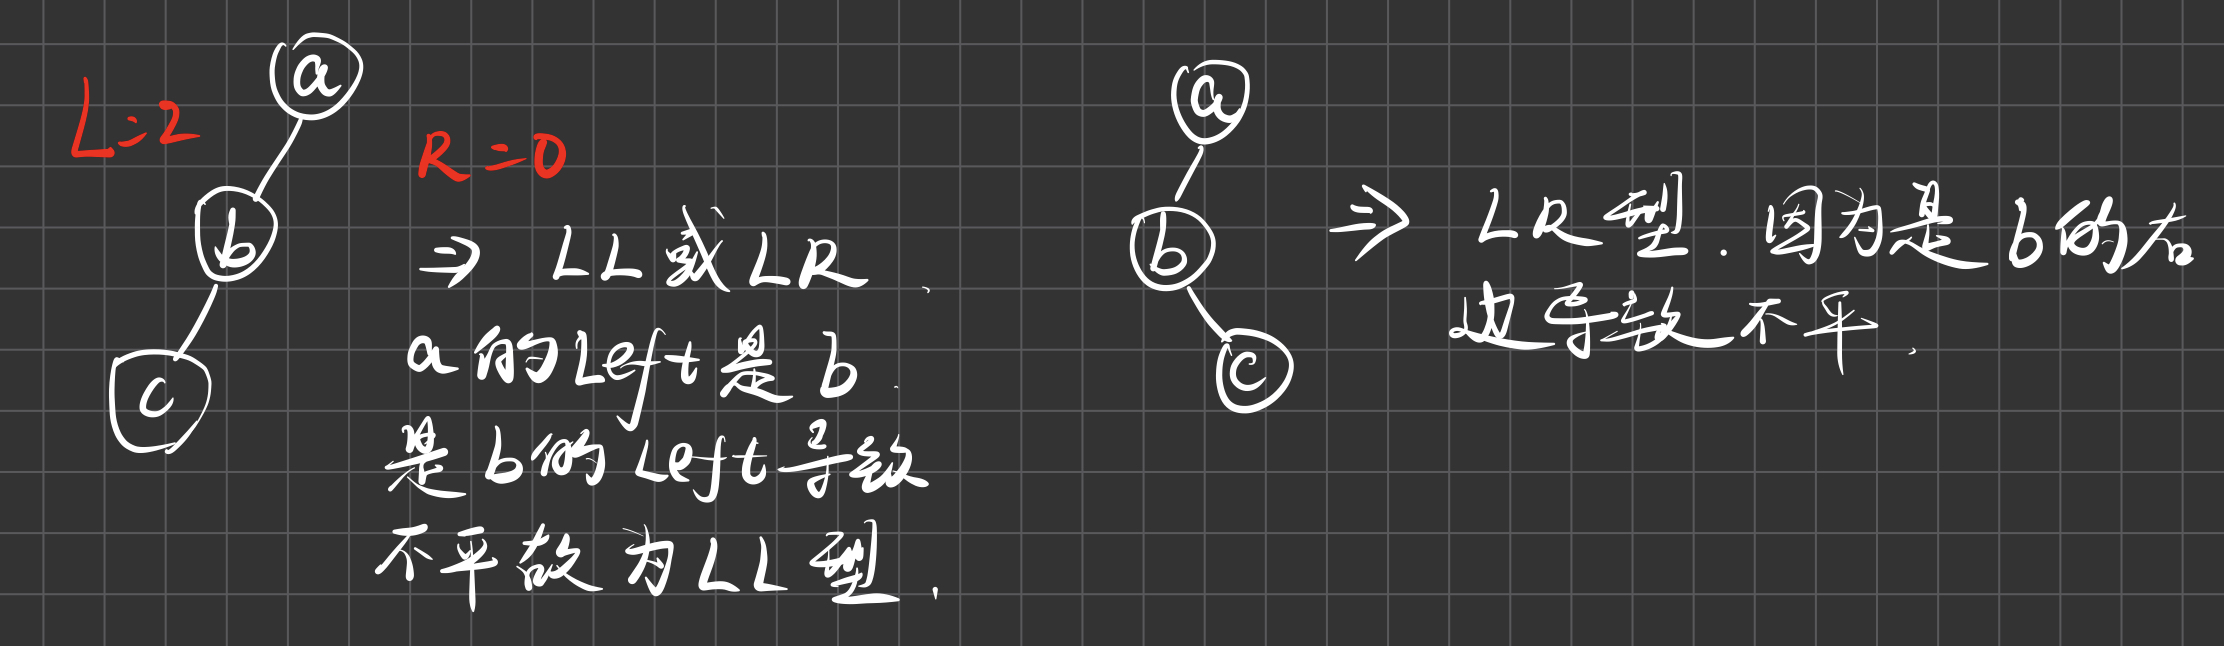 a
L=2
R=0
b
c
⇒ LL或LR.
a的Left是b.
是b的Left导致
不平故为LL型.
a
b
c
⇒ LR型.因为是b的右
边导致不平.